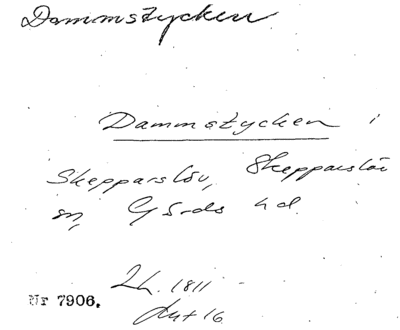 Dammstycken
Dammstycken i
Skepparslöv, Skepparslöv
sn, Gärds hd.
Lh. 1811
Akt 16
Nr 7906.